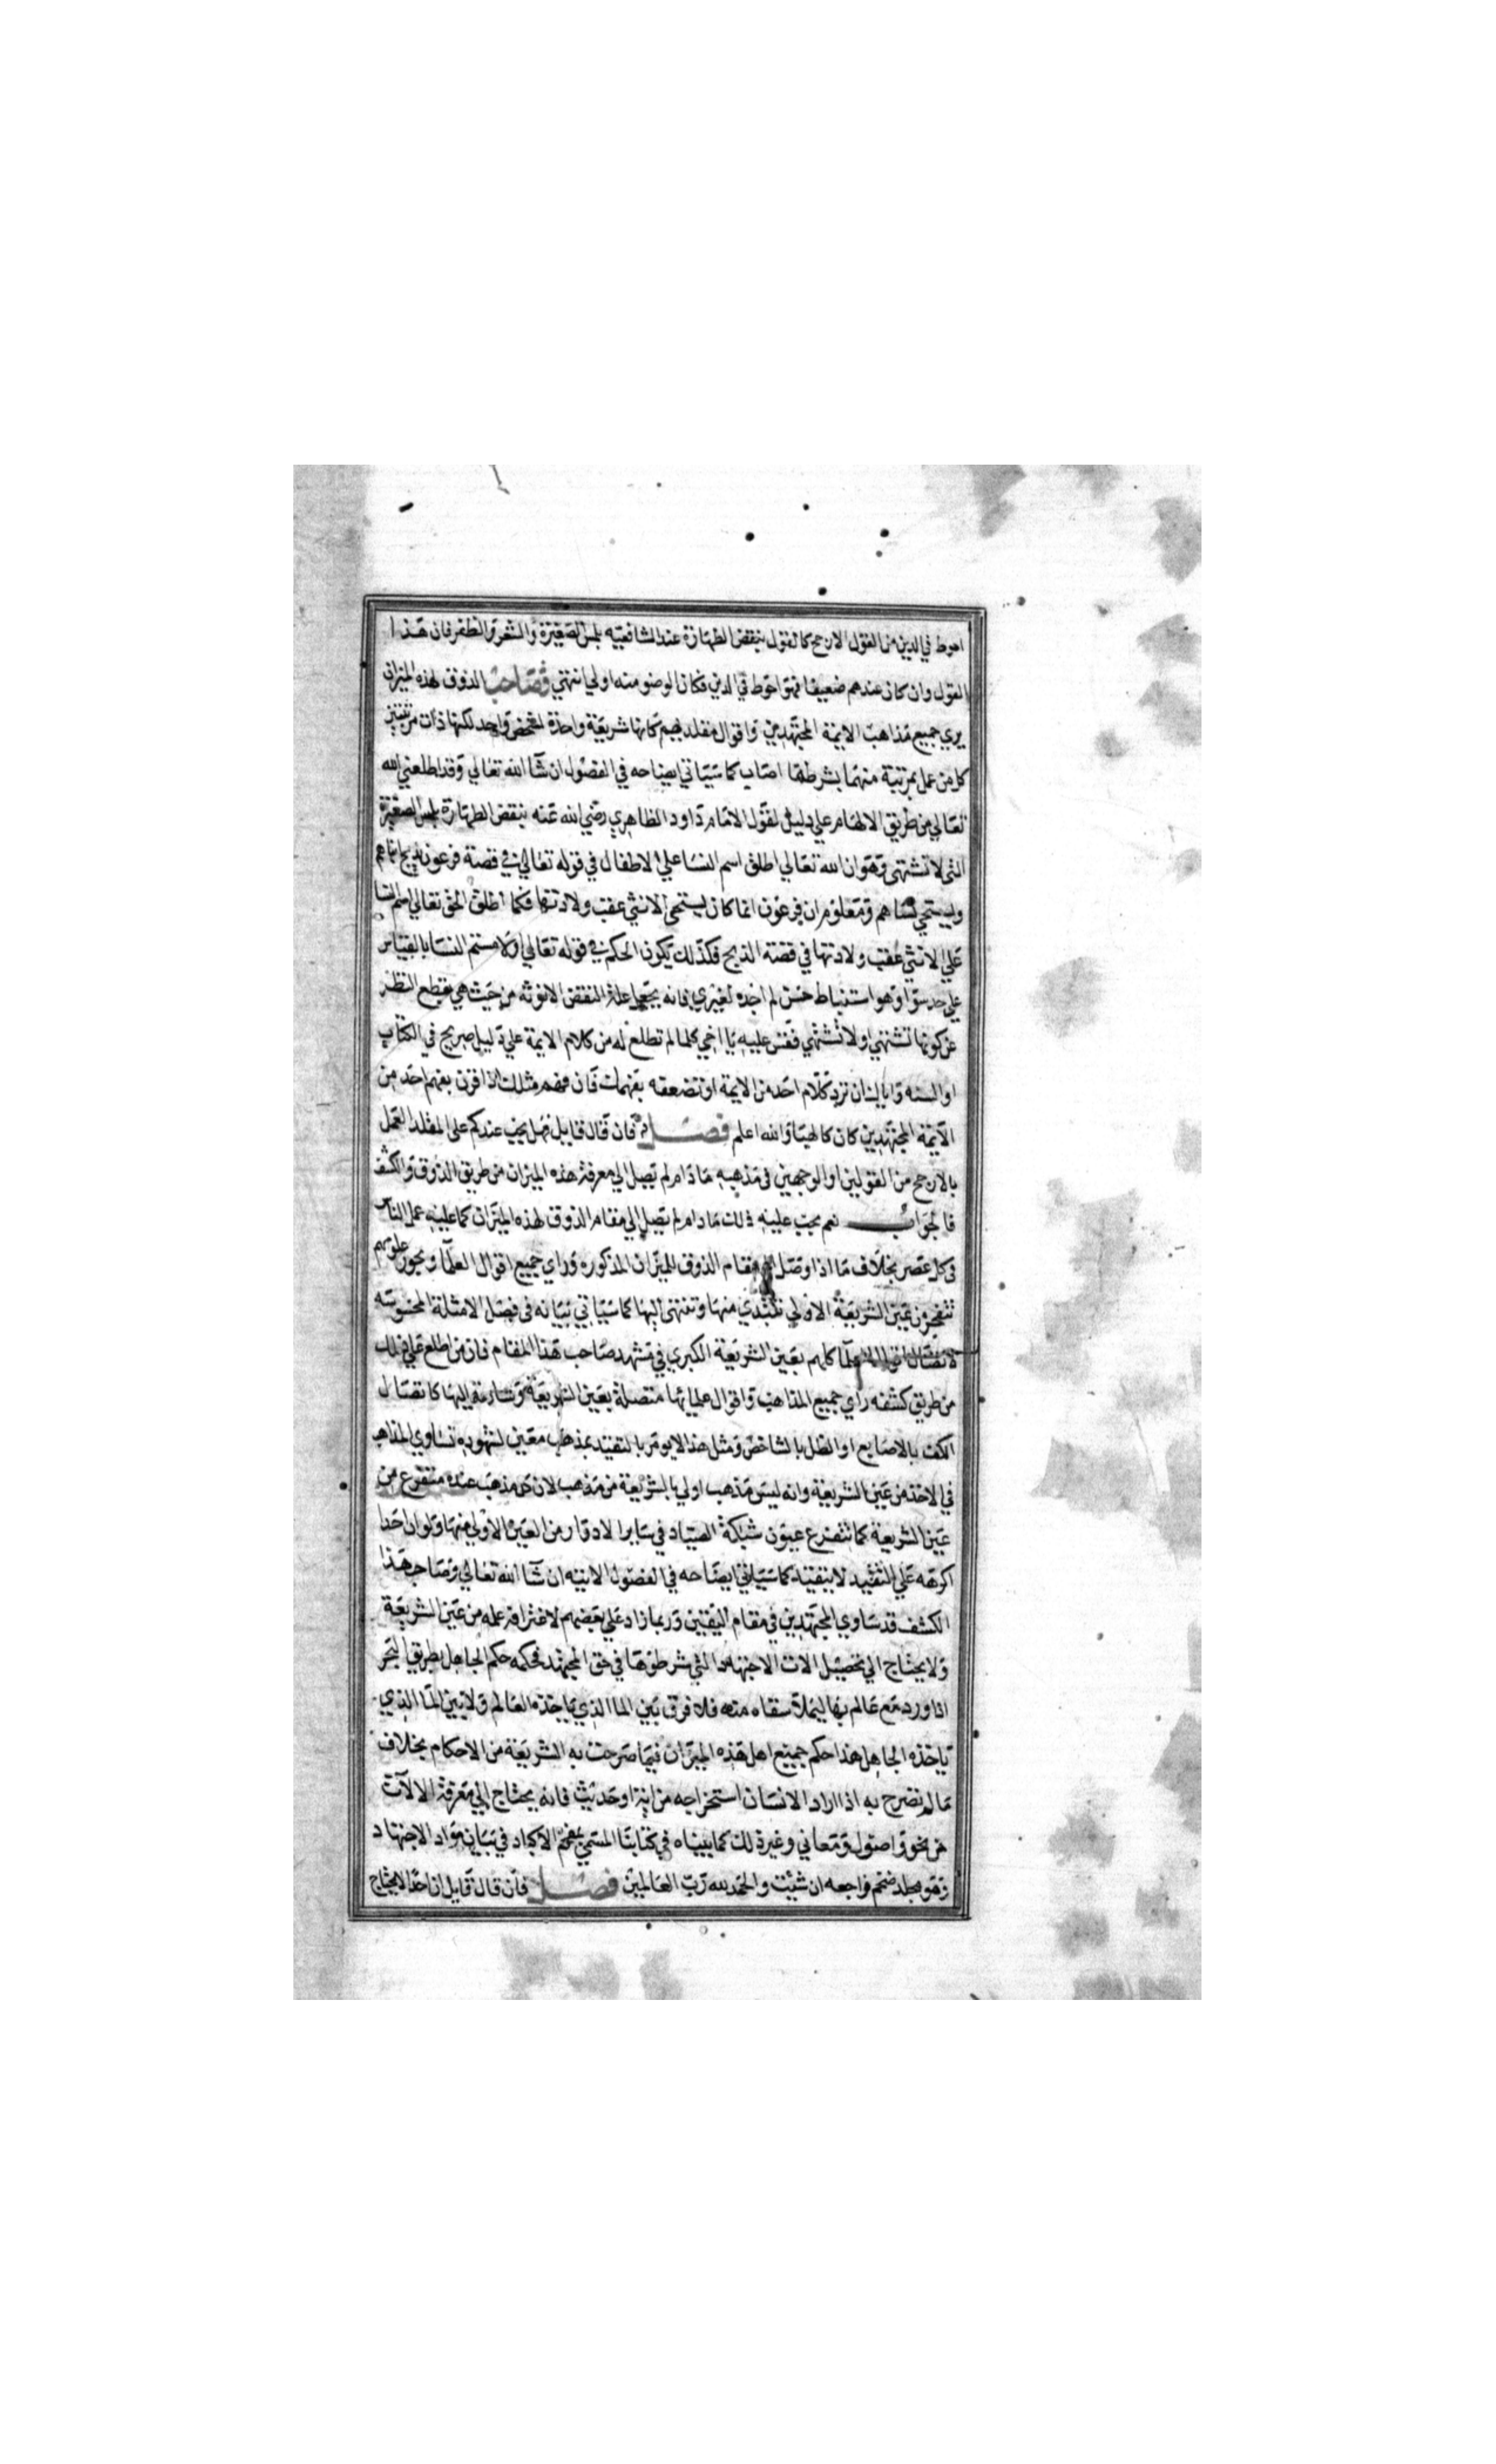 احوط في الدين من القول الارجح كالقول بنقض الطهارة عند الشافعيه بلمس الصغيرة والشعر والظفر فان هذا
القول وان كان عندهم ضعيفا فهو احوط في الدين فكان الوضو منه اولي انتهي فصاحب الذوق لهذه الميزان
يري جميع مذاهب الايمة المجتهدين واقوال مقلديهم كانها شريعة واحدة لشخص واحد لكنها ذات مرتبتين
كل من عمل بمرتبة منهما بشرطها اصاب كما سيياتي ايضاحه في الفصول ان شا الله تعالي وقد اطلعني الله
تعالي من طريق الالهام علي دليل لقول الامام داود الظاهري رضي الله عنه بنقض الطهارة بلمس الصغيرة
التي لا تشتهي وهو ان الله تعالي اطلق اسم النسا علي الاطفال في قوله تعالي في قصة فرعون يذبح ابناهم
ويستحي نساهم ومعلوم ان فرعون انما كان يستحي الانثي عقب ولادتها فكما اطلق الحق تعالي اسم النسا
علي الانثي عقب ولادتها في قصة الذبح فكذلك يكون الحكم في قوله تعالي اولامستم النسا بالقياس
علي حد سوا وهو استنباط حسن لم اجده لغيري فانه يجعل علة النقض الانوثه من حيث هي بقطع النظر
عن كونها تشتهي او لا تشتهي فقس عليه يا اخي كلما لم تطلع له من كلام الايمة علي دليل صريح في الكتاب
او السنه واياك ان ترد كلام احد من الايمة او تضعفه بفهمك فان فهم مثلك اذا قرن بفهم احد من
الايمة المجتهدين كان كالهبا والله اعلم فصل فان قال قايل فهل يجب عندكم على المقلد العمل
بالارجح من القولين او الوجهين في مذهبه ما دام لم يصل الي معرفة هذه الميزان من طريق الذوق والكشف
فالجواب نعم يجب عليه ذلك ما دام لم يصل الي مقام الذوق لهذه الميزان كما عليه عمل الناس
في كل عصر بخلاف ما اذا وصل الي مقام الذوق للميزان المذكوره وراي جميع اقوال العلما وبحور علومهم
تتفجر من عين الشريعة الاولي تبتدي منها وتنتهي اليها كما سيياتي بيانه في فصل الامثلة المحسوسه
لاتصال اقوال العلما كلهم بعين الشريعة الكبري في مشهد صاحب هذا المقام فان من اطلع علي ذلك
من طريق كشفه راي جميع المذاهب واقوال علمائها متصلة بعين الشريعة وشارعة اليها كاتصال
الكف بالاصابع او الظل بالشاخص ومثل هذا لا يومر بالتقيد بمذهب معين لشهوده تساوي المذاهب
في الاخذ من عين الشريعة وانه ليس مذهب اولي بالشريعة من مذهب لان كل مذهب عنده متفرع من
عين الشريعة كما تتفرع عيون شبكة الصياد في ساير الادوار من العين الاولي منها ولو ان احدا
اكرهه علي التقييد لا يتقيد كما سيياتي ايضاحه في الفصول الاتيه ان شا الله تعالي وصاحب هذا
الكشف قد ساوي المجتهدين في مقام اليقين وربما زاد علي بعضهم لاغتراف علمه من عين الشريعة
ولا يحتاج الي تحصيل الات الاجتهاد التي شرطوها في حق المجتهد فحكمه حكم الجاهل بطريق البحر
اذا ورد مع عالم بها ليملا سقاه منه فلا فرق بين الما الذي ياخذه العالم ولا بين الما الذي
ياخذه الجاهل هذا حكم جميع اهل هذه الميزان فيما صرحت به الشريعة من الاحكام بخلاف
ما لم تصرح به اذا اراد الانسان استخراجه من اية او حديث فانه يحتاج الي معرفة الالات
من نحو واصول ومعاني وغير ذلك كما بيناه في كتابنا المسمي بمفحم الاكباد في بيان مواد الاجتهاد
وهو مجلد ضخم فراجعه ان شيت والحمد لله رب العالمين فصل فان قال قايل ان احدا لا يحتاج